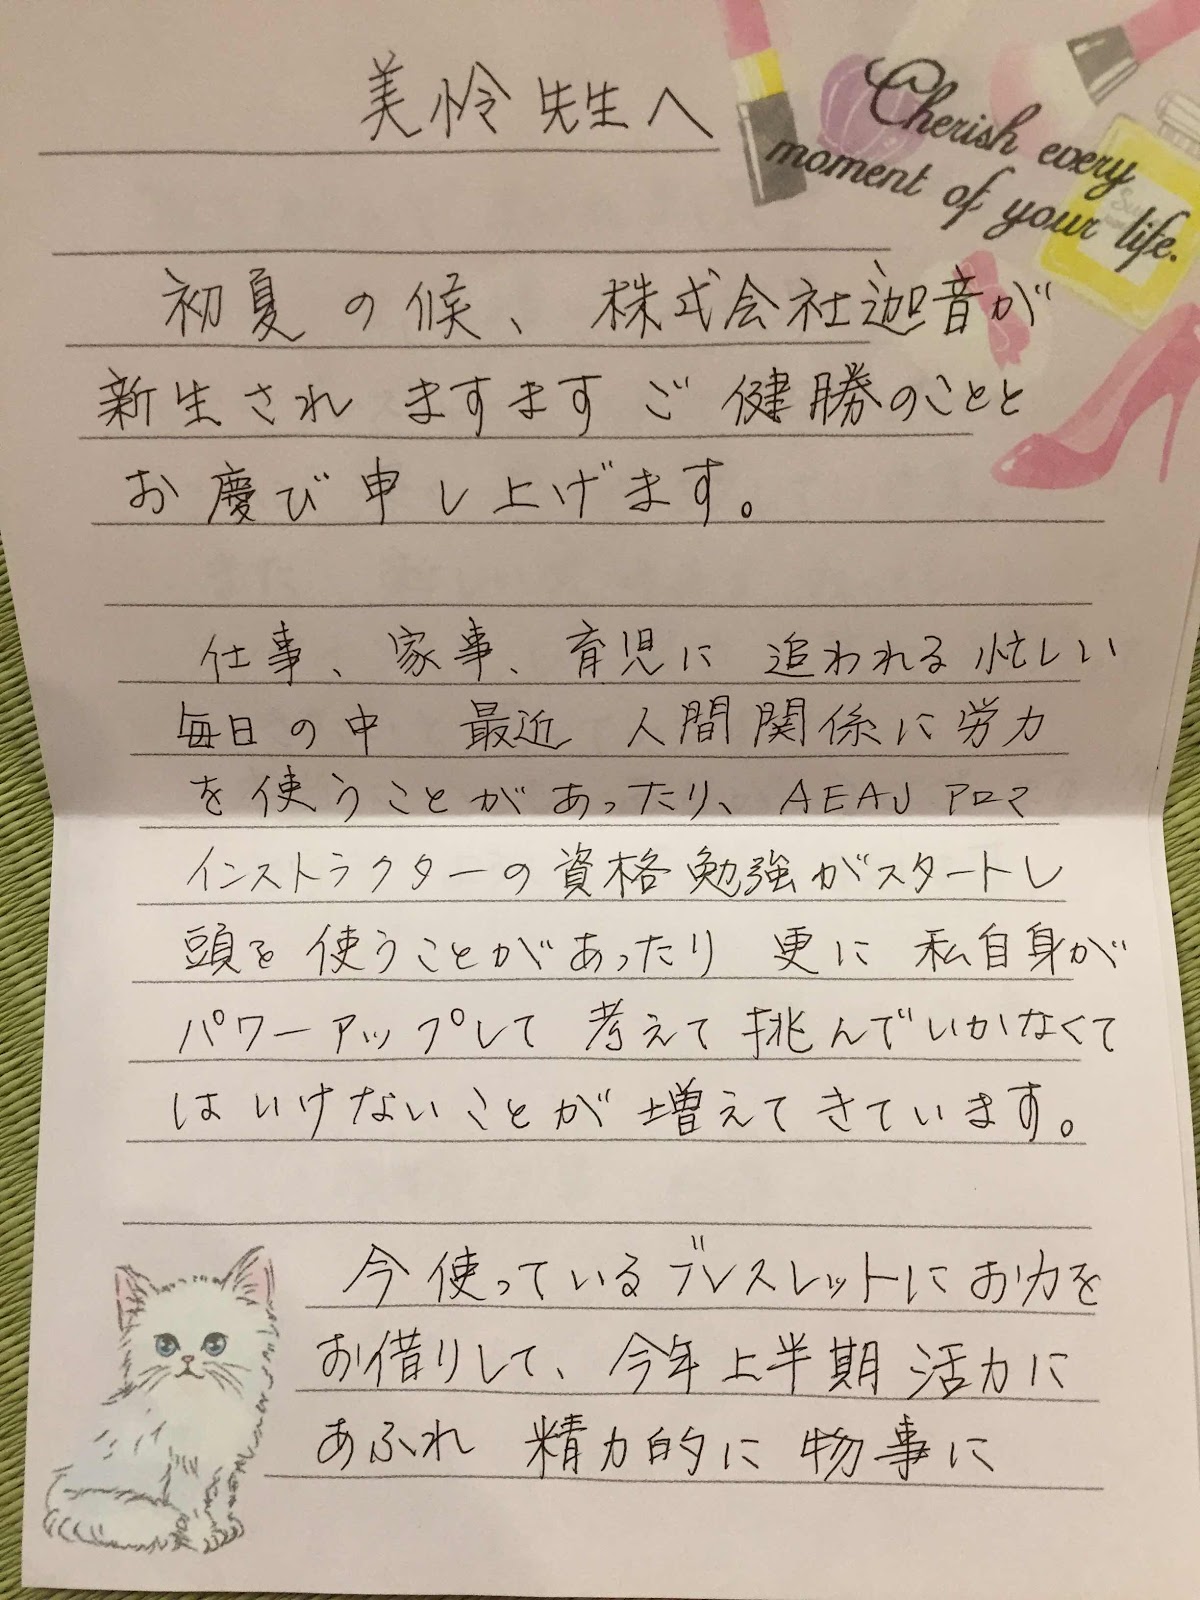 美怜先生へ
Cherish every
moment of your life.
初夏の候、株式会社迦音が
新生され ますます ご健勝のことと
お慶び申し上げます。
仕事、家事、育児に 追われる 忙しい
毎日の中 最近 人間関係に労力
を使うことがあったり、AEAJ アロマ
インストラクターの資格勉強がスタートし
頭を使うことがあったり 更に 私自身が
パワーアップして 考えて 挑んでいかなくて
はいけないことが増えてきています。
今使っているブレスレットにお力を
お借りして、今年上半期 活力に
あふれ 精力的に 物事に